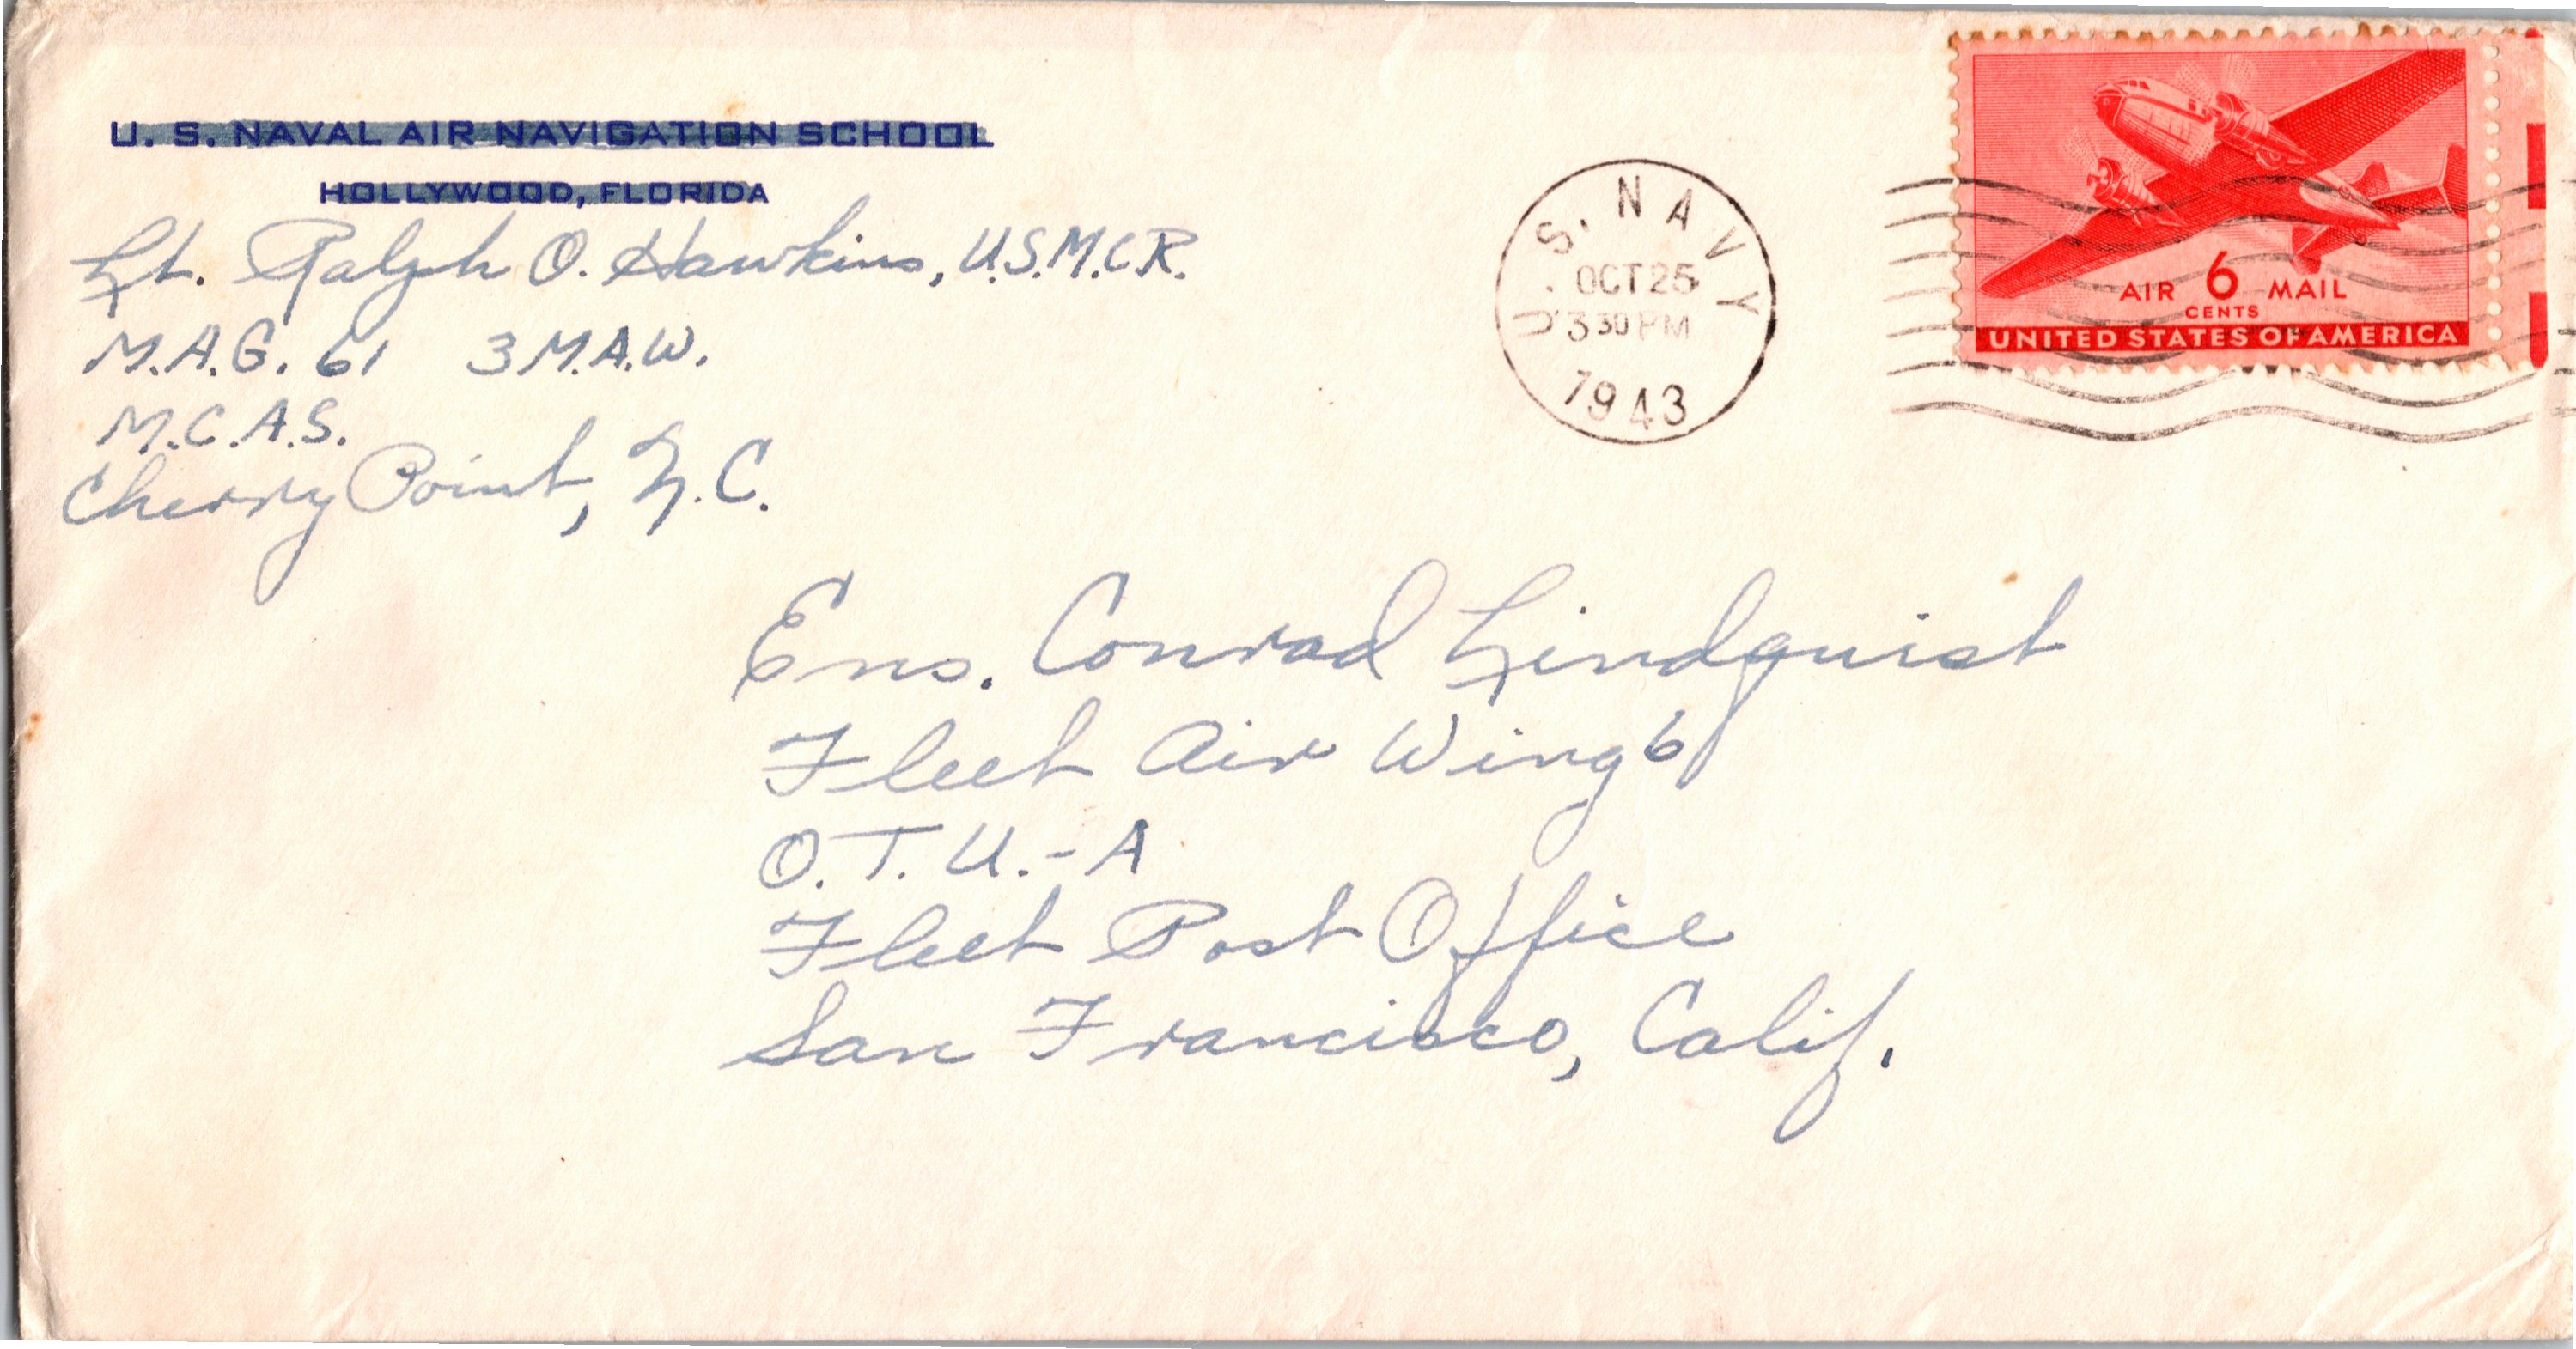 U. S. NAVAL AIR NAVIGATION SCHOOL
HOLLYWOOD, FLORIDA
Lt. Ralph O. Hawkins, U.S.M.C.R.
M.A.G. 61 3 M.A.W.
M.C.A.S.
Cherry Point, N.C.
U. S. NAVY
OCT 25
3 30 PM
1943
AIR 6 MAIL
CENTS
UNITED STATES OF AMERICA
Ens. Conrad Lindquist
Fleet Air Wing 6
O.T.U.-A
Fleet Post Office
San Francisco, Calif.